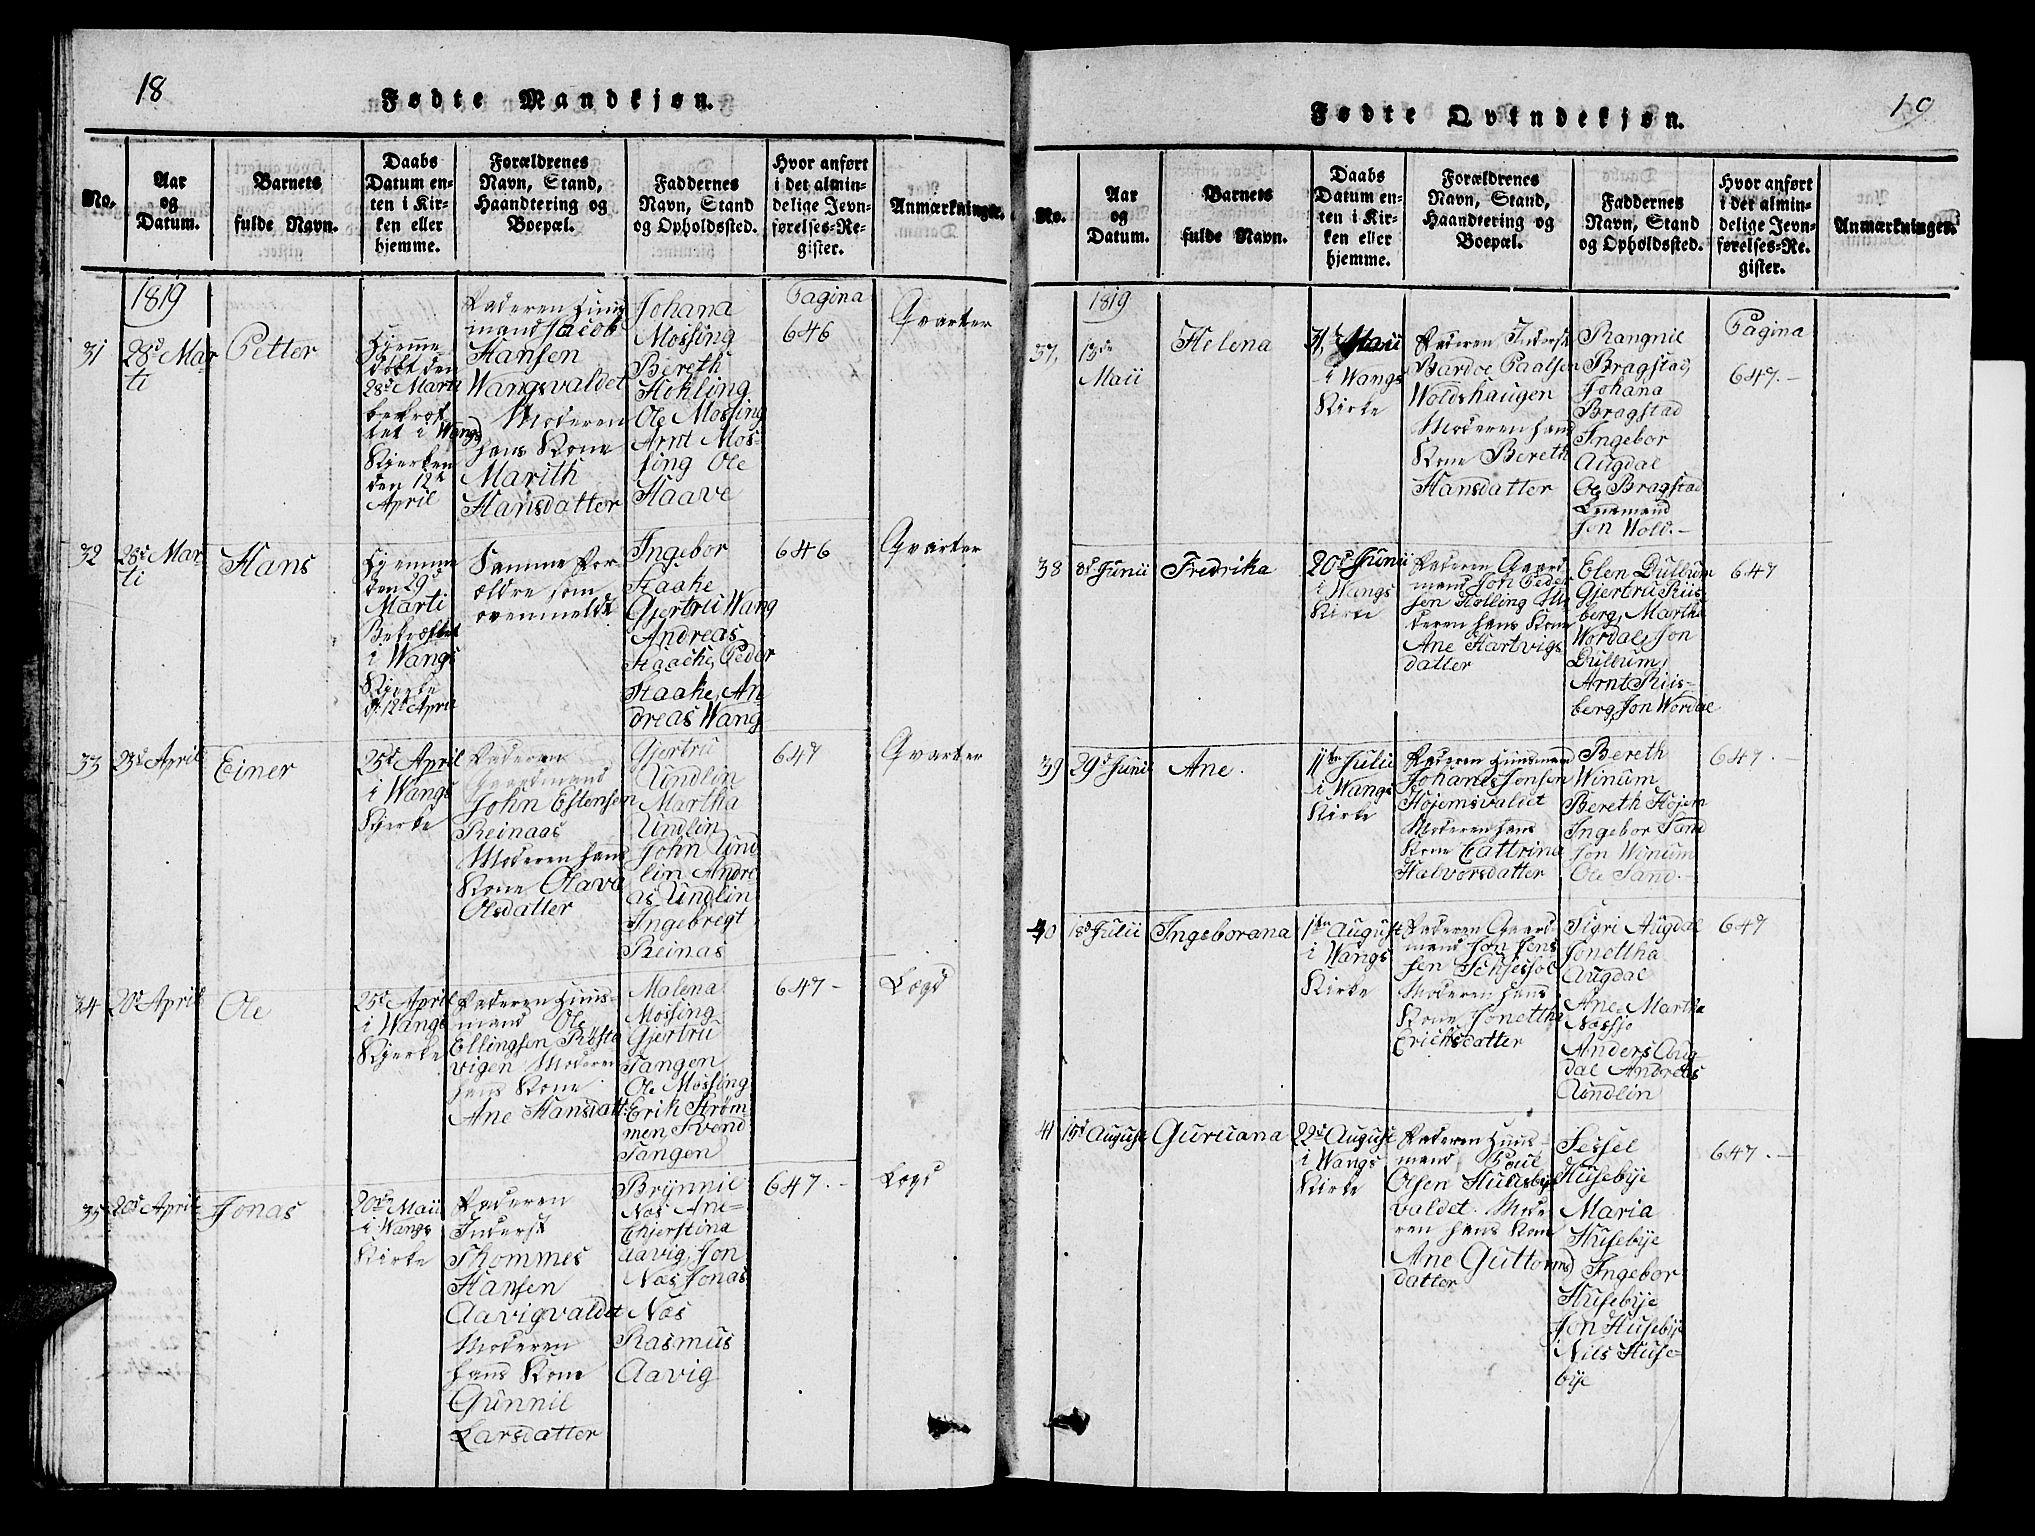 18
Fødte Mandkjøn.
No.
Aar
og
Datum.
Barnets
fulde Navn.
Daabs
Datum en-
ten i Kir-
ken eller
hjemme.
Forældrenes
Navn, Stand,
Haandtering og
Boepæl.
Faddernes
Navn, Stand
og Opholdssted.
Hvor anført
i det almin-
delige Jevn-
førelses-Re-
gister.
Anmærkninger.
1819
31
28d Mar
ti
Petter
Hjemme
døbt den
28d Marti
bekræf
tet i Wangs
Kjerken
den 12te
April
Faderen Huus
mand Jacob
Hansen
Wangsvaldet
Moderen
hans Kone
Marith
Hansdatter
Johana
Mossing
Bereth
Hokling
Ole Mossing
Arnt Mos-
sing Ole
Haave
Pagina
646
Qvarter
32
28d Mar
ti
Hans
Hjemme
den 29d
Marti
Bekræftet
i Wangs
Kjerke
d. 12te April
Samme For
ældre som
ovenmeldt
Ingebor
Haake
Gjertru Wang
Andreas
Haake, Peder
Haake, An
dreas Wang
646
Qvarter
33
23d April
Einer
25d April
i Wangs
Kjerke
Faderen
Gaardmand
John Estensen
Reinaas
Moderen hans
Kone Olava
Olsdatter
Gjertru
Undlin
Martha
Undlin
John Und
lin Andre
as Undlin
Ingebregt
Reinas
647
Qvarter
34
20d April
Ole
25d April
i Wangs
Kjerke
Faderen Huus-
mand Ole
Ellingsen Røsta
vigen Moderen
hans Kone
Ane Hansdatt:
Malena
Mossing
Gjertru
Tangen
Ole Mossing
Erik Strøm
men, Svend
Tangen
647 -
Lægd
35
20d April
Jonas
20d Maii
i Wangs
Kirke
Faderen
Inderst
Thommes
Hansen
Aavigvaldet
Moderen
hans Kone
Gunnil
Larsdatter
Brynnil
Næs Ane-
Chjerstina
Aavig, Jon
Næs Jonas
Næs
Rasmus
Aavig
647. -
Lægd
19
Fødte Qvindekjøn.
No.
Aar
og
Datum.
Barnets
fulde Navn.
Daabs
Datum en-
ten i Kir-
ken eller
hjemme.
Forældrenes
Navn, Stand,
Haandtering og
Boepæl.
Faddernes
Navn, Stand
og Opholdssted.
Hvor anført
i det almin-
delige Jevn-
førelses-Re-
gister.
Anmærkninger.
1819
37,
13de
Maii
Helena
31, Maii
i Wangs
Kirke
Faderen Inderst
Bardoe Paalsen
Woldshaugen
Moderen hans
Kone Bereth
Hansdatter
Rangnil
Bragstad,
Johana
Bragstad
Ingebor
Augdal
Ole Bragstad
Jon Wold. -
Pagina
647. -
38
8d Junii
Fredrika
20d Junii
i Wangs
Kirke
Faderen Gaard
mand Jon Peder
sen Holling Mo
deren hans Kone
Ane Hartvigs
datter
Elen Dullum
Gjertru Riis
berg, Martha
Wordal, Jon
Dullum,
Arnt Riis-
berg, Jon Wordal
647
39
29d Junii
Ane.
11te Julii
i Wangs
Kirke
Faderen Huusmand
Johanes Jonsen
Hojemsvaldet
Moderen hans
Kone Cattrina
Halvorsdatter
Bereth
Winum
Bereth Hojem
Ingebor Sand
Jon Winum
Ole Sand. -
647. -
40
18d Julii
Ingeborana
1te August
i Wangs
Kirke
Faderen Gaard
mand Jon Jens
sen Schjessol
Moderen hans
Kone Jonettha
Erichsdatter
Sigri Augdal
Jonettha
Augdal
Ane Martha
Næssjo
Anders Aug
dal Andreas
Undlin
647
41
15d August
Guruana
22d August
i Wangs
Kirke
Faderen Huus-
mand Poul
Olsen Husebye
valdet. Mode
ren hans Kone
Ane Guttorms
datter
Sessel
Husebye
Maria
Husebye
Ingebor
Husebye
Jon Husebye
Nils Huse-
bye
647. -